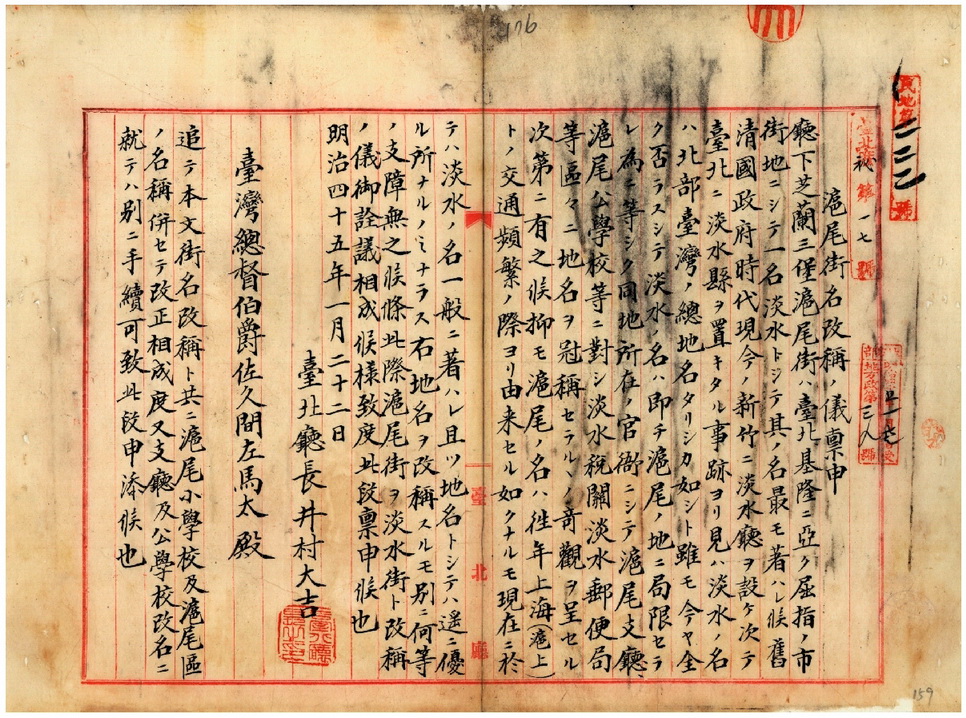 176
民地第二三三號
臺北廳
秘第一七號
滬尾街名改稱ノ儀稟申
廳下芝蘭三堡滬尾街ハ臺北基隆ニ亞ク屈指ノ市
街地ニシテ一名淡水トシテ其ノ名最モ著ハレ候舊
清國政府時代現今ノ新竹ニ淡水廳ヲ設ケ次テ
臺北ニ淡水縣ヲ置キタル事跡ヨリ見ハ淡水ノ名
ハ北部臺灣ノ總地名タリシカ如シト雖モ今ヤ全
ク否ラスシテ淡水ノ名ハ即チ滬尾ノ地ニ局限セラ
レ為ニ等シク同地所在ノ官衙ニシテ滬尾支廳、
滬尾公學校等ニ對シ淡水稅關淡水郵便局
等區々ニ地名ヲ冠稱セラルヽノ奇觀ヲ呈セル
次第ニ有之候抑モ滬尾ノ名ハ徃年上海(滬上)
トノ交通頻繁ノ際ヨリ由来セル如クナルモ現在ニ於
テハ淡水ノ名一般ニ著ハレ且ツ地名トシテハ遥ニ優
ル所ナルノミナラス右地名ヲ改稱スルモ別ニ何等
ノ支障無之候條此際滬尾街ヲ淡水街ト改稱
ノ儀御詮議相成候様致度此段稟申候也
明治四十五年一月二十二日
臺北廳長井村大吉
臺灣總督伯爵佐久間左馬太殿
追テ本文街名改稱ト共ニ滬尾小學校及滬尾區
ノ名稱併セテ改正相成度又支廳及公學校改名ニ
就テハ別ニ手續可致此段申添候也
臺北廳
159